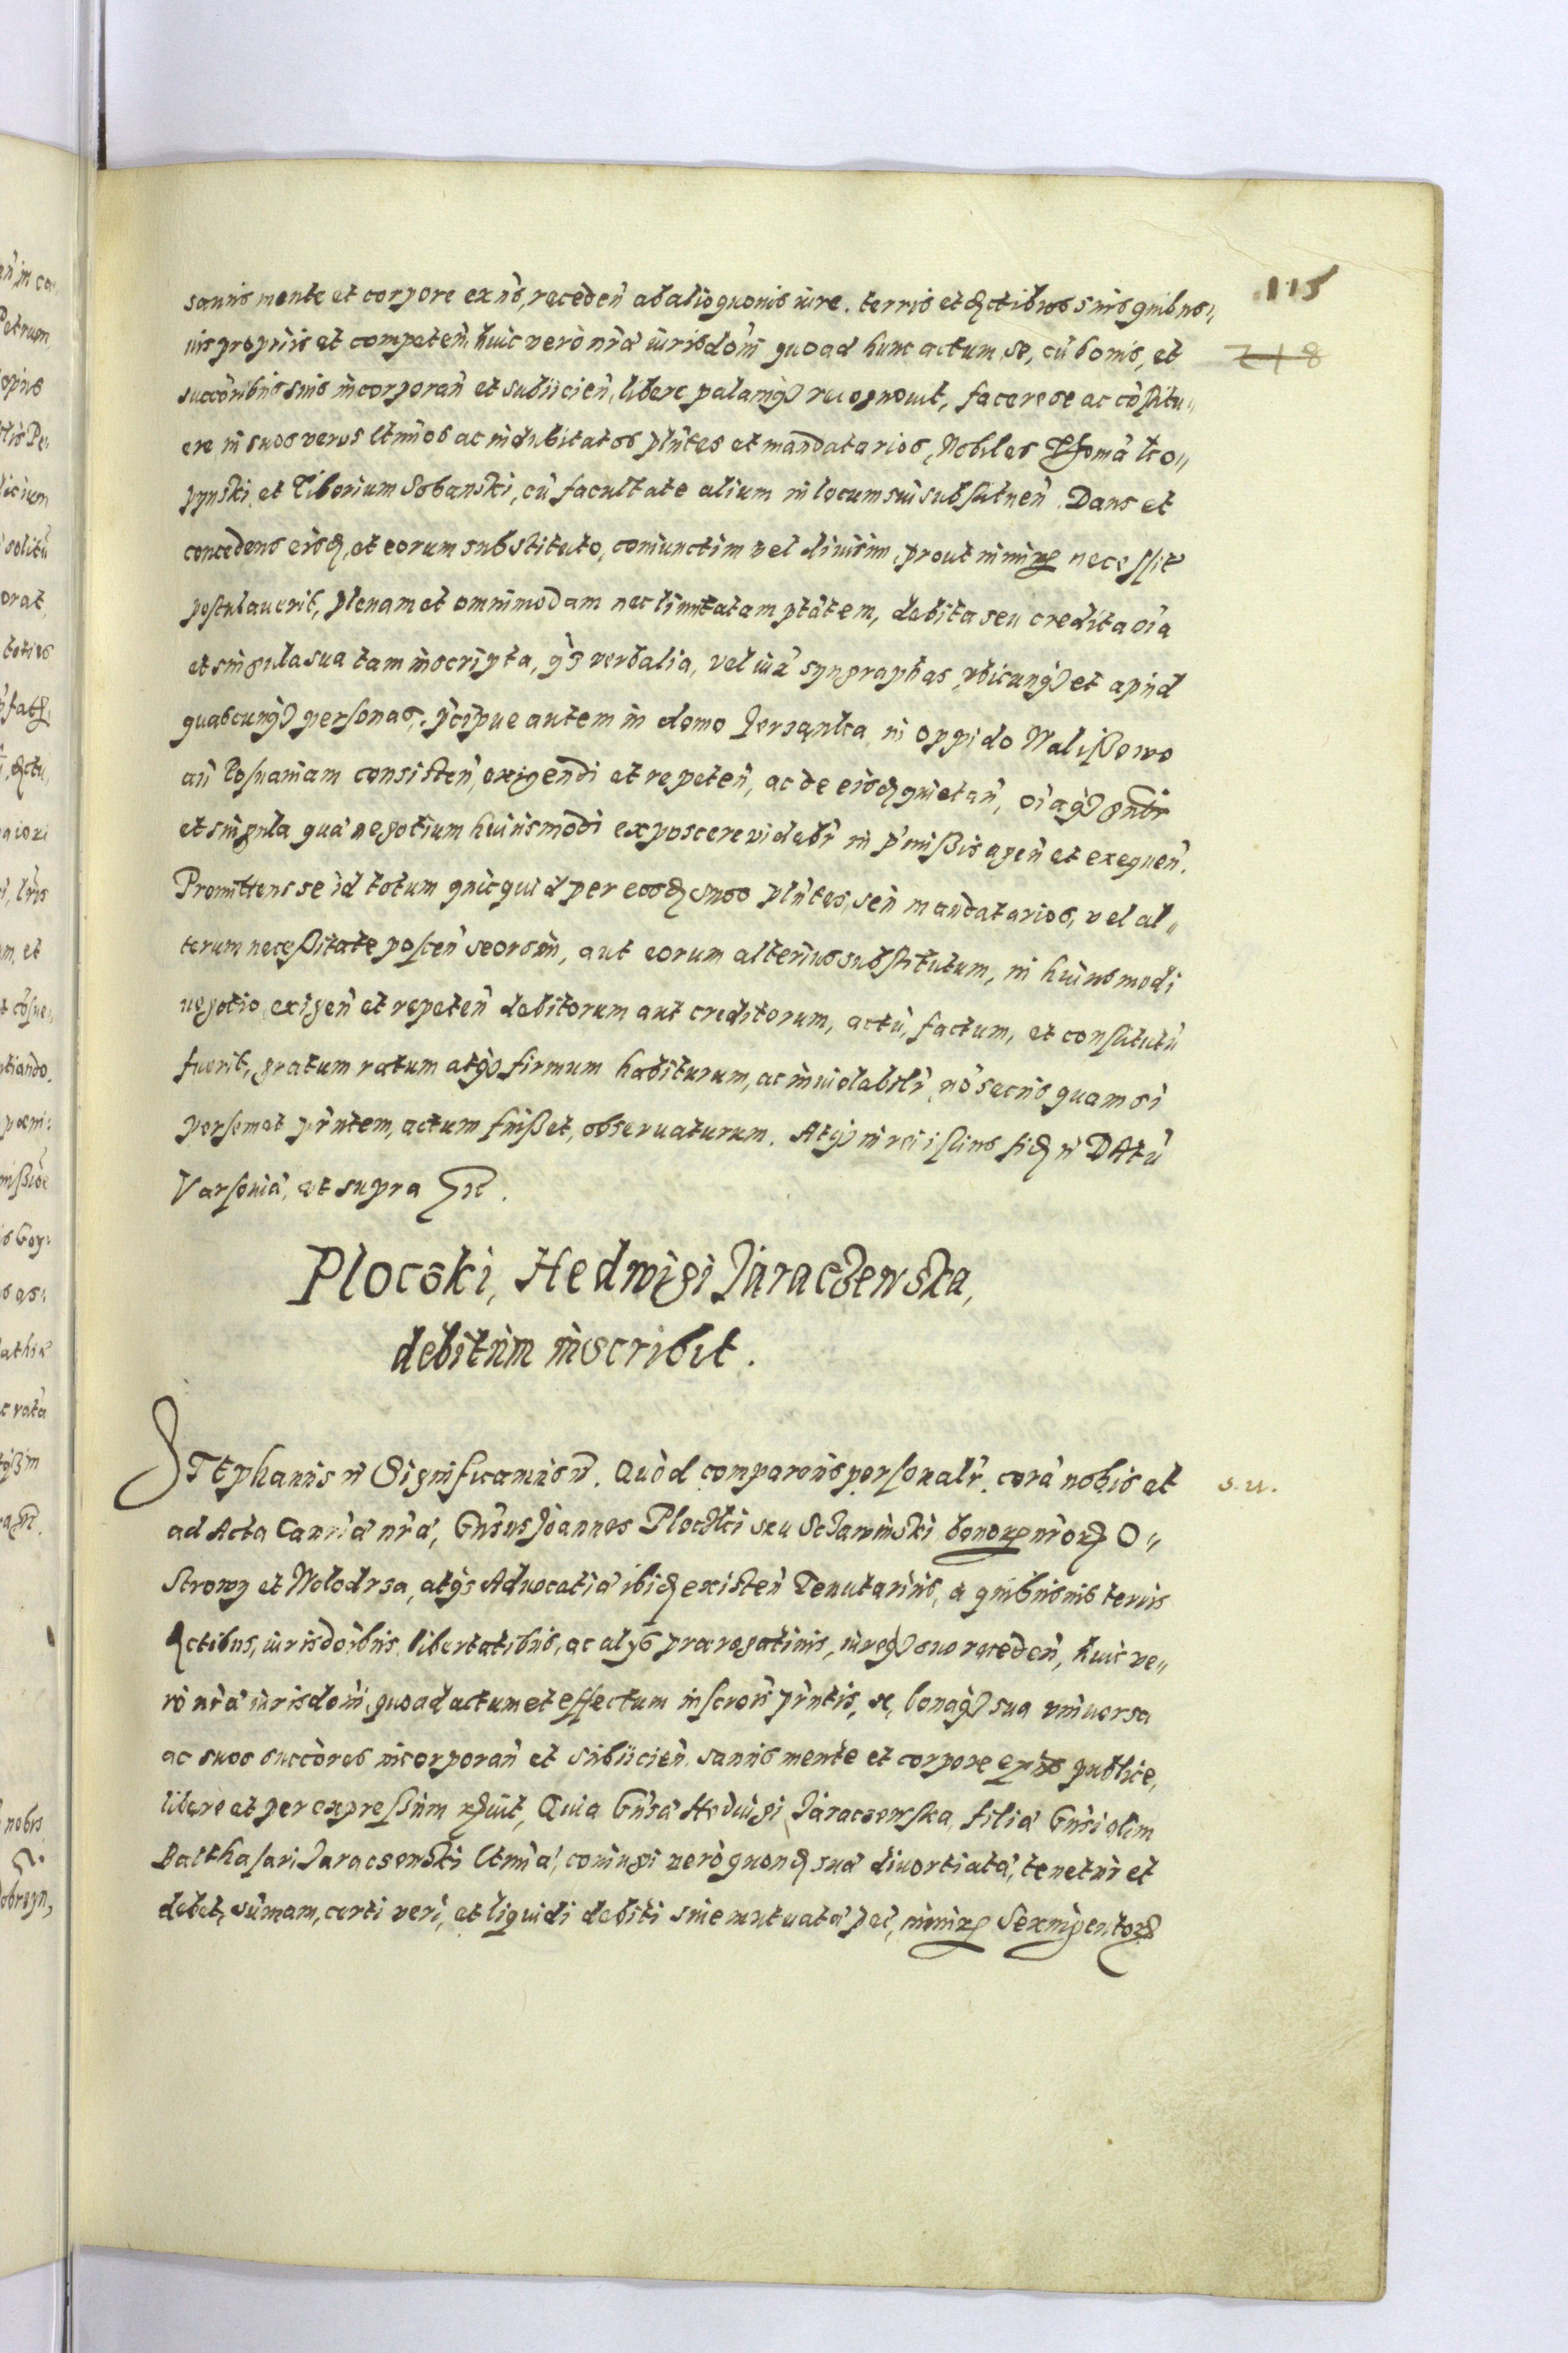 115
218
sanus mente et corpore exns, receden ab alio quouis iure. terris et dictibus suis quibus„
uis propriis et competen, huic vero nrae iurisdoni quoad hunc actum se, cu bonis, et
succoribus suis incorporan et subiicien, libere palamq recognouit, facere se ac constitu„
ere in suos veros ltimos ac indubitatos plntes et mandatarios, Nobiles Thoma
et Tiborium Sobanski, cu facultate alium in locum sui substituen. Dans et
concedens eisd, et eorum substituto, coniunctim vel diuisim, prout nimirum necessit
postulauerit, plenam et omnimodam nec limitatam ptatem, debita seu credita oia
et singula sua tam inscripta, qz verbalia, vel iux syngraphas, vbicunq et apud
quascunq personas, pcipue autem in domo in oppido Walissowo
an Posnaniam consisten, exigendi et repeten, ac de eisd quietan, oiaq gnlr
et singula quae negotium huiusmodi exposcere videbr in pmissis agen et exequen.
Promittens se id totum quicquid per eosd suos plntes, seu mandatarios, vel al„
terum necessitate poscen seorsim, aut eorum alterius substitutum, in huiusmodi
negotio exigen et repeten debitorum aut creditorum, actu, factum, et constitutu
fuerit, gratum ratum atq firmum habiturum, ac inuiolabilr, no secus quam si
persemet pntem, actum fuisset, observaturum. Atq in rei istius fid n DAtu
Varsouia, ut supra
Plocski, Hedwigi Jaraczewska,
debitum inscribit.
STephanus n Significamus n. Quod comparens personalr. cora nobis et
s. u.
ad Acta Canria nra, Gnsus Joannes Plocski seu Sclawinski bonorum nrord O„
strowy et Wolodrsa, atqs Aduocatia ibid existen Tenutarius, a quibusuis terris
dictibus, iurisdoibus, libertatibus, ac alijs praerogatiuis, iureq suo receden, huic ve„
ro nrae iurisdoni, quoad actum et effectum inscrois pntis, se, bonaq sua vniuersa
ac suos succores incorporan et subiicien. sanus mente et corpore exns publice,
libere et per expressum, Quia Gnsa Heduigi Jaraczewska, filia Gnsi olim
Balthasari Jaraczewski ltima, coniugi vero quond sua diuortiata, tenetur et
debet, sumam, certi veri, et liquidi debiti siue mutuata pec, nimirum Sexingentord